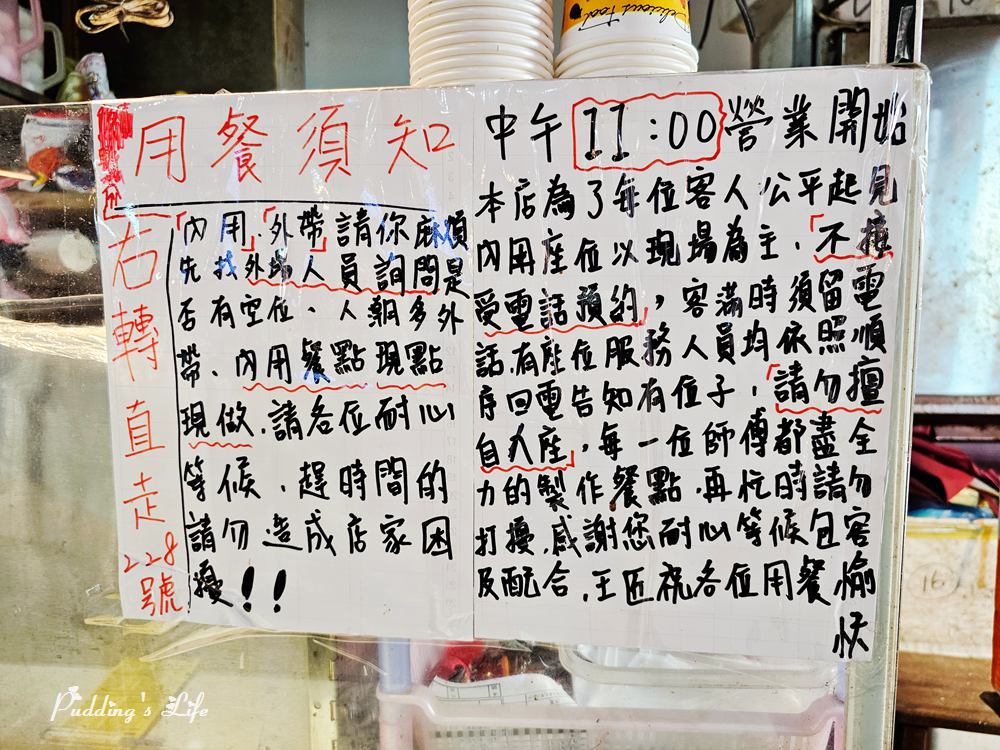 Delicious Food
用餐須知
右轉直走228號
「內用」、「外帶」請你麻煩
先找外場人員詢問是
否有空位、人潮多外
帶、內用餐點現點
現做、請各位耐心
等候、趕時間的
請勿造成店家困
擾!!
中午11:00營業開始
本店為了每位客人公平起見
內用座位以現場為主、「不接
受電話預約」,客滿時須留電
話、有座位服務人員均依照順
序回電告知有位子,「請勿擅
自入座」,每一位師傅都盡全
力的製作餐點、再忙時請勿
打擾、感謝您耐心等候包容
及配合、王匠祝各位用餐愉
快
16
Pudding's Life